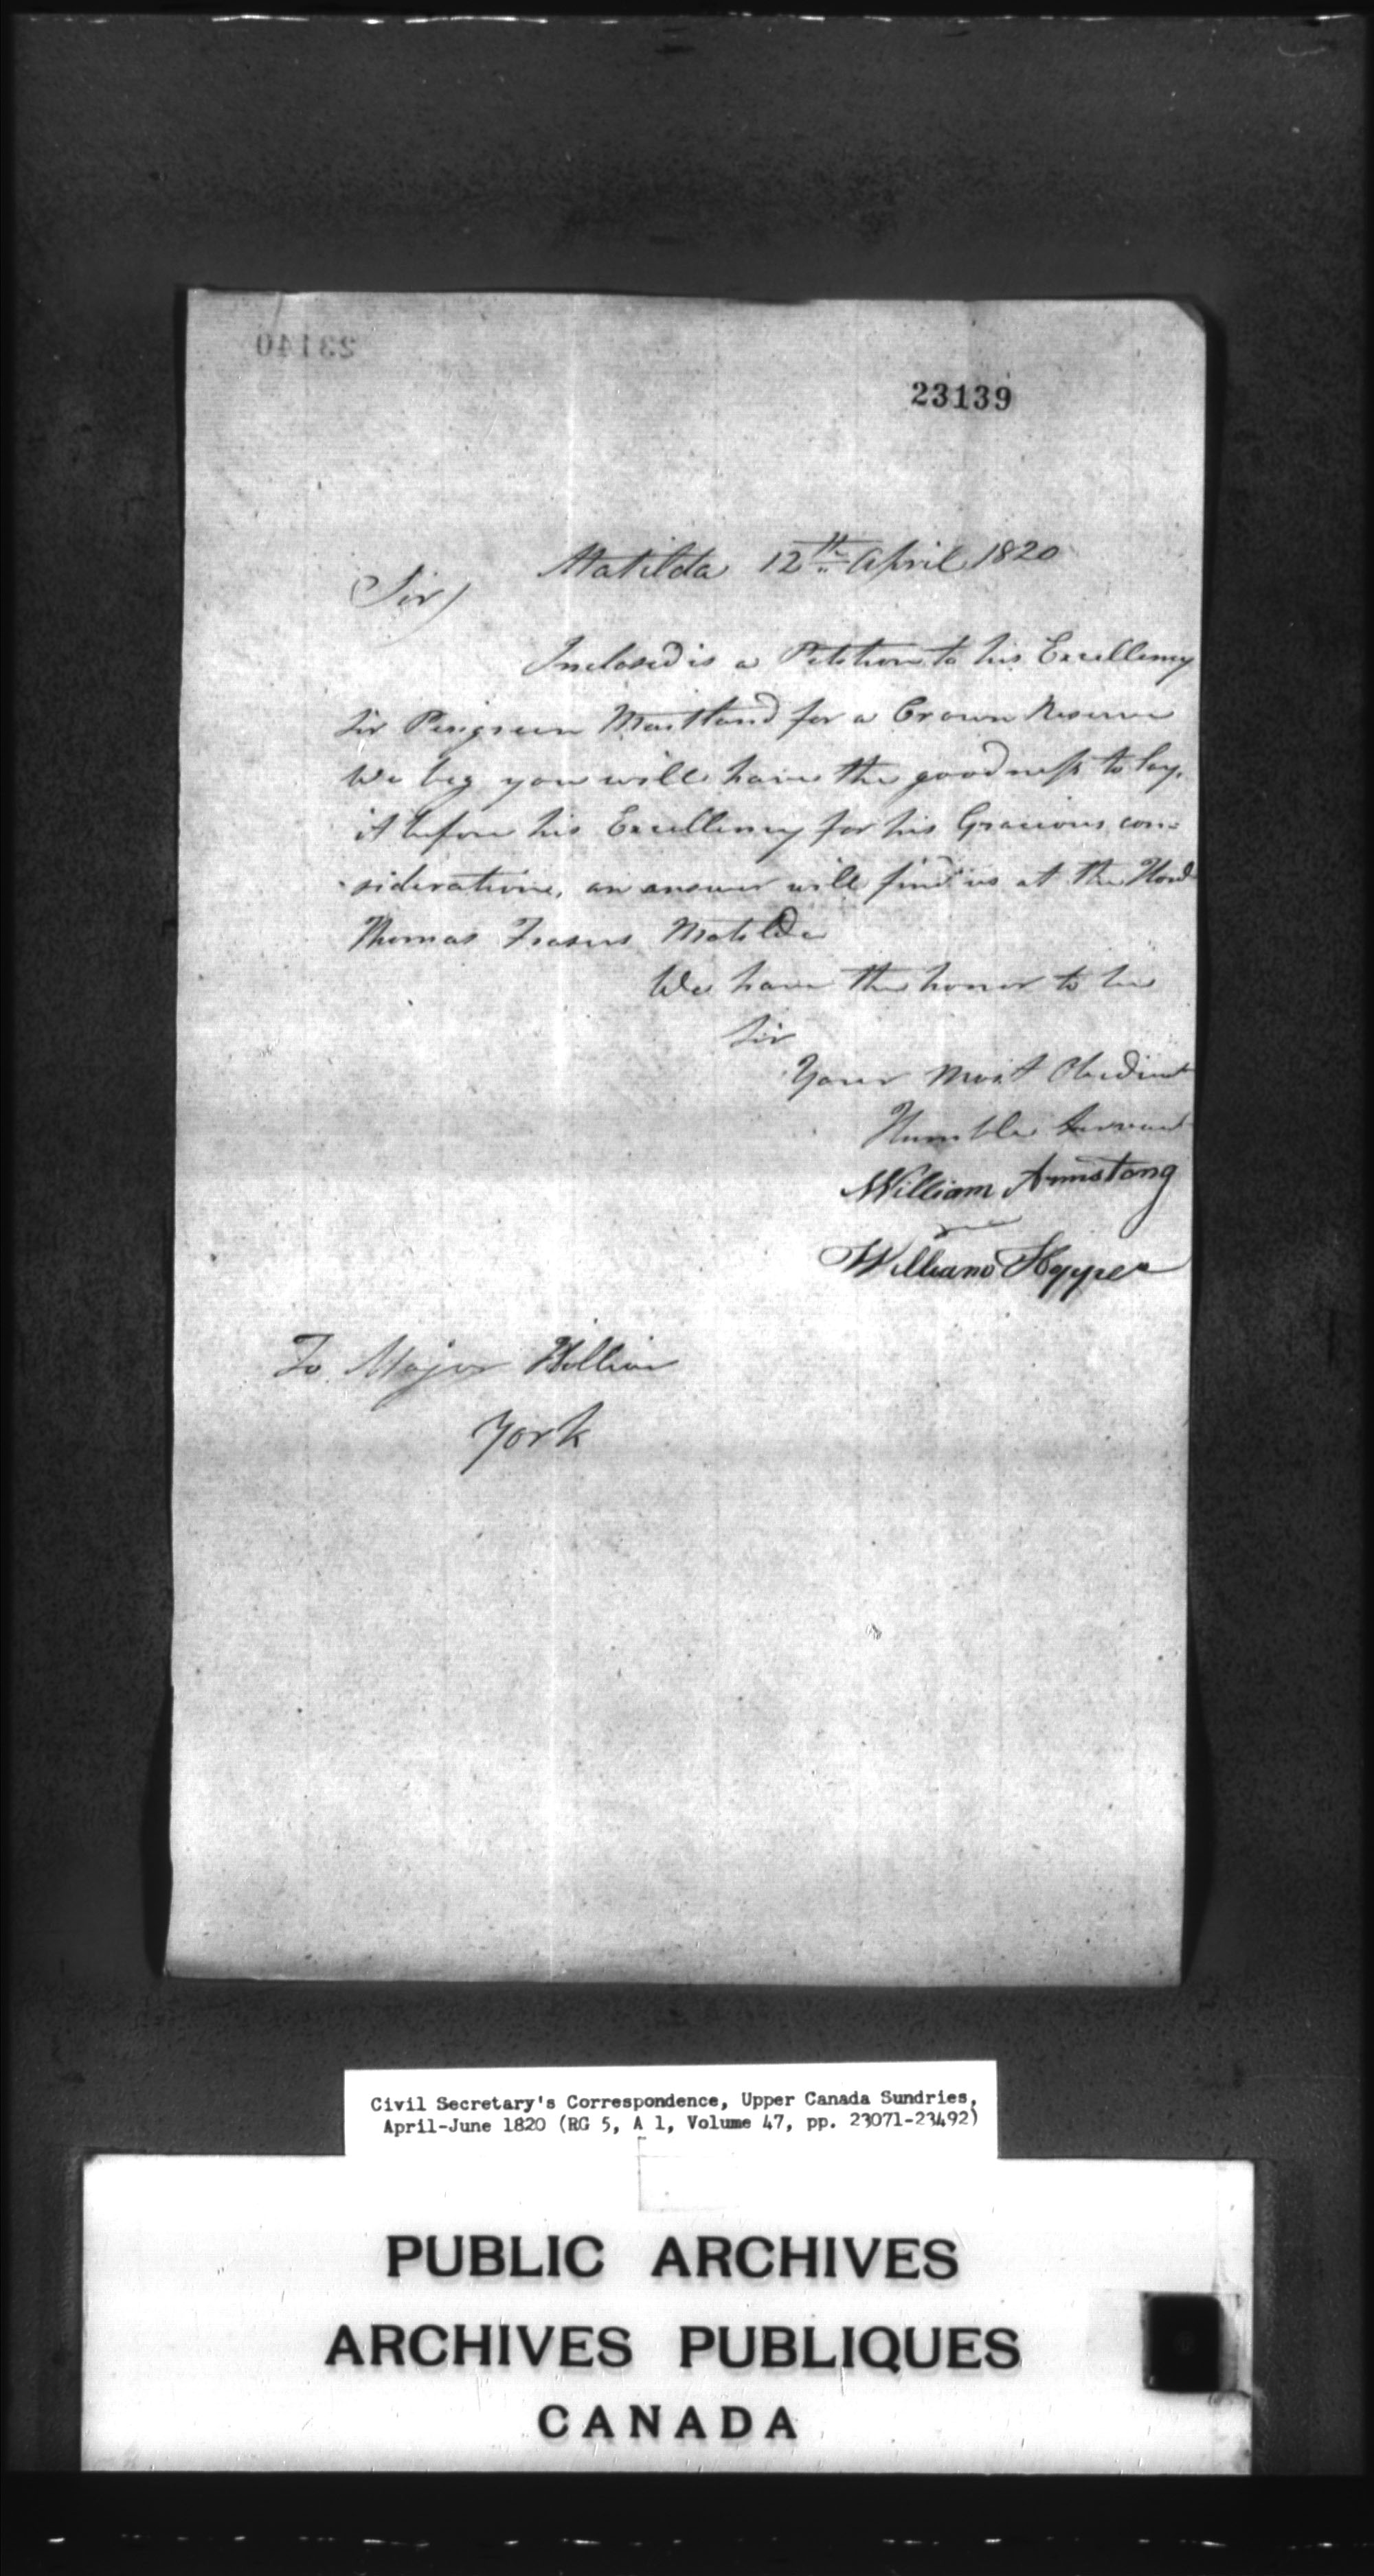 23140
23139
Matilda 12th April 1820
Sir
Inclosed is a Petition to his Excellency
Sir Perigreen Maitland for a Crown Reserve
We beg you will have the goodness to lay
it before his Excellency for his Gracious con=
sideration, an answer will find us at the Honl
Thomas Frasers Matilda
We have the honor to be
Sir
Your Most Obedient
Humble Servant
William Armstong
William Hopper
To Major Hillier
York
Civil Secretary's Correspondence, Upper Canada Sundries,
April-June 1820 (RG 5, A 1, Volume 47, pp. 23071-23492)
PUBLIC ARCHIVES
ARCHIVES PUBLIQUES
CANADA